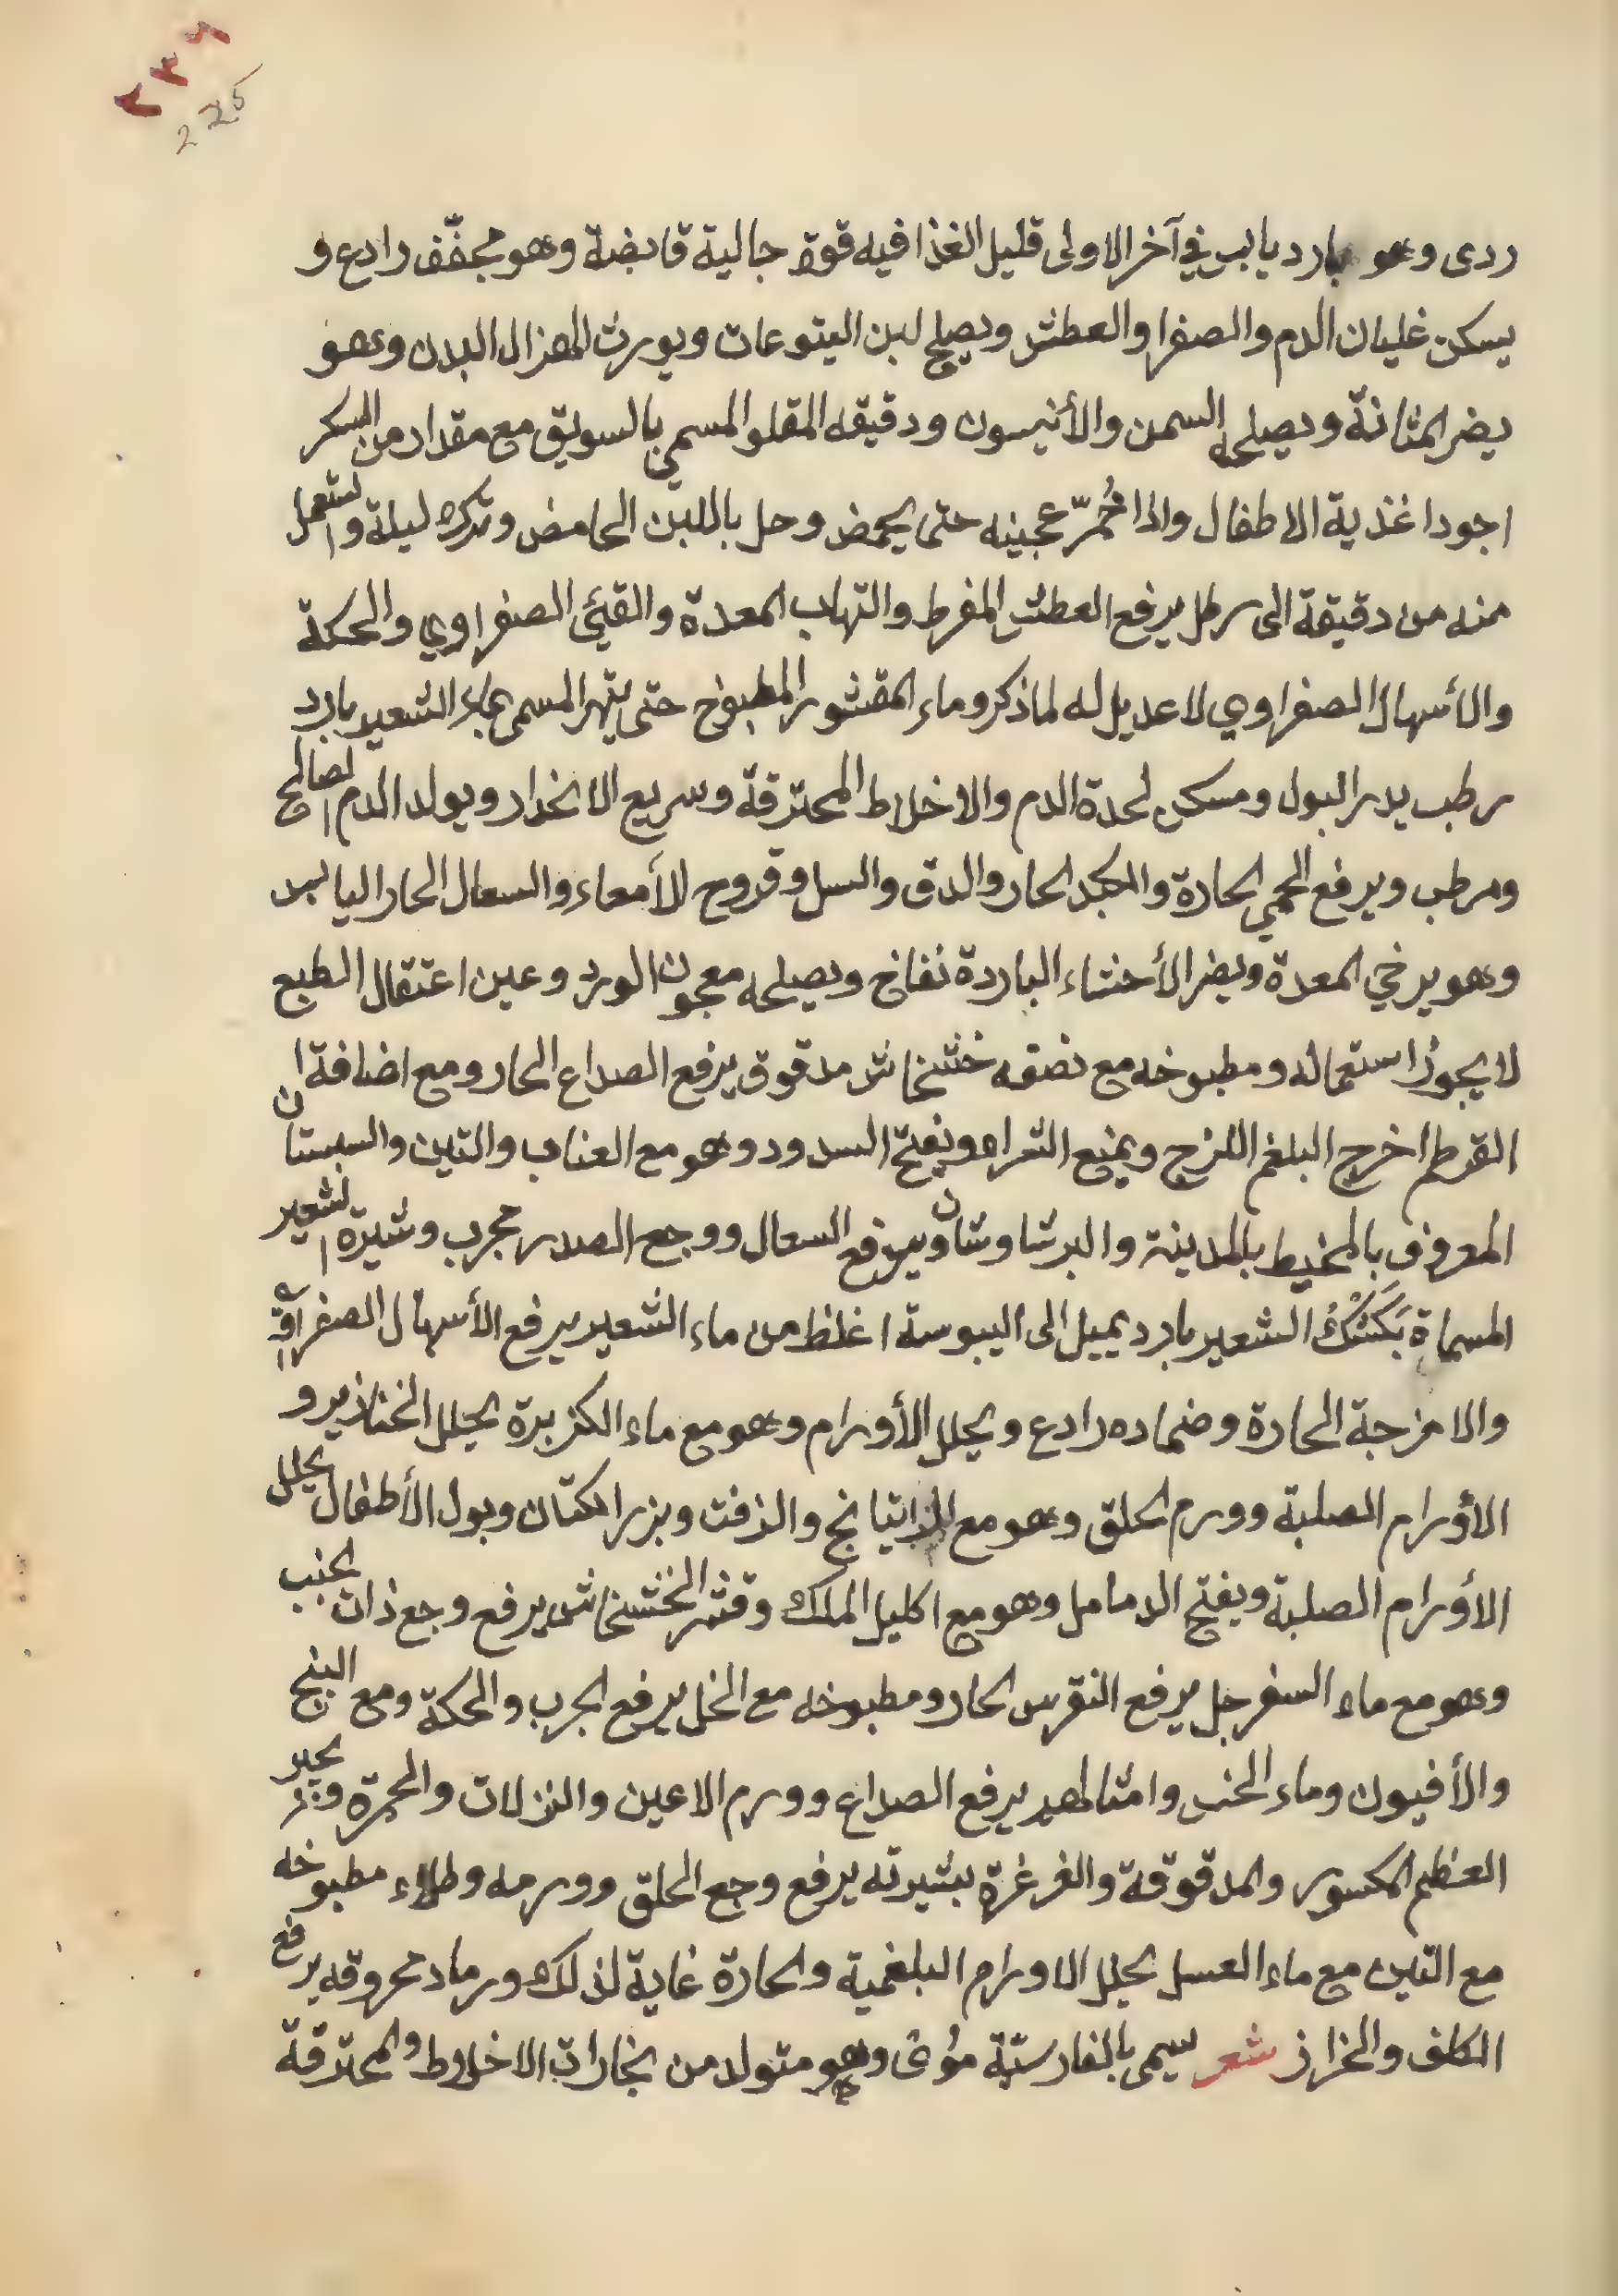 ٢٣٦
225
ردى وهو بارد يابس في آخر الاولى قليل الغذا فيه قوة جالية قابضة وهو مجفّف رادع و
يسكن غليان الدم والصفرا والعطش ويصلح لبن اليتوعات ويورث الهزال البدن وهو
يضر المثانة ويصلحه السمن والأنيسون ودقيقه المقلو المسمي بالسويق مع مقدار من السكر
اجود اغذية الاطفال واذا خُمّر عجينه حتى يحمض وحل باللبن الحامض وتركه ليلة واستعمل
منه من دقيقة الى رطل يرفع العطش المفرط والتهاب المعدة والقيئ الصفراوي والحكة
والأسهال الصفراوي لا عديل له لما ذكر وماء المقشور المطبوخ حتى يتهرا المسمى بماء الشعير بارد
رطب يدر البول ومسكن لحدة الدم والاخلاط المحترقة وسريع الانحدار ويولد الدم الصالح
ومرطب ويرفع الحمي الحادة والكبد الحار والدق والسل وقروح الأمعاء والسعال الحار اليابس
وهو يرخي المعدة ويضر الأحشاء الباردة نفاخ ويصلحه معجون الورد وعين اعتقال الطبع
لا يجوز استعماله ومطبوخه مع نصفه خشخاش مدقوق يرفع الصداع الحار ومع اضافة ان
القرطم اخرج البلغم اللزج ويمنع ويفتح السدود وهو مع العناب والتين والسبستان
المعروف بالمخيط بالمدينة والبرشاوشان ويرفع السعال ووجع الصدر مجرب وشيرة الشعير
المسماة بَكَشْكُ الشعير بارد يميل الى اليبوسة اغلظ من ماء الشعير يرفع الأسهال الصفراوي
والامزجة الحادة وضماده رادع ويحلل الأورام وهو مع ماء الكزبرة يحلل الخنازير و
الأورام الصلبة وورم الحلق وهو مع الراتيانج والزفت وبزر الكتان وبول الأطفال يحلل
الأورام الصلبة ويفتح الدمامل وهو مع اكليل الملك وقشر الخشخاش يرفع وجع ذات الجنب
وهو مع ماء السفرجل يرفع النقرس الحار ومطبوخه مع الخل يرفع الجرب والحكة ومع البنج
والأفيون وماء الخس وامثالهم يرفع الصداع وورم الاعين والنزلات والحمرة ويجبر
العظم المكسور والمدقوقة والغرغرة بشيرته يرفع وجع الحلق وورمه وطلاء مطبوخه
مع التين مع ماء العسل يحلل الاورام البلغمية والحارة غاية لذلك ورماد محروقه يرفع
الكلف والحزاز شعر يسمى بالفارسيّة مؤى وهو متولد من بخارات الاخلاط والمحترقة